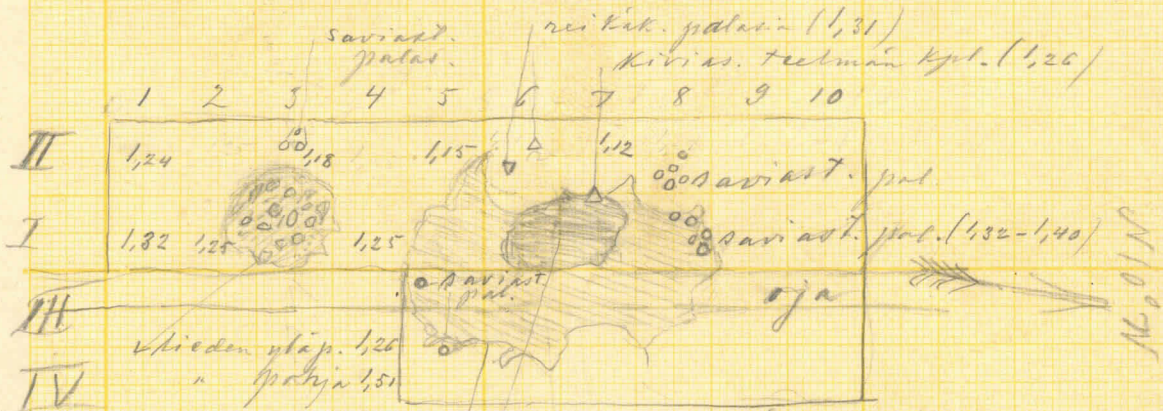 saviast. palas.
reikäk. palasia (1,31)
kivias. teelmän kpl. (1,26)
1 2 3 4 5 6 7 8 9 10
II 1,24 1,18 1,15 1,12
saviast. pal.
I 1,32 1,25 10 1,25
saviast. pal. (1,32-1,40)
saviast. pal.
oja
III
lieden yläp. 1,26
" pohja 1,51
IV